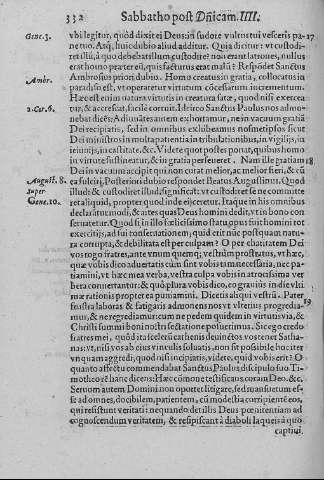 332 Sabbatho post Dñicam. IIII.
Genes. 3. vbi legitur, quòd dixit ei Deus: in sudore vultus tui vesceris pa- 17
ne tuo. Atq; huic dubio aliud additur. Quia dicitur: vt custodi-
ret illū, à quo debebat illum custodire? non erant latrones, nullus
erat homo præter eū, quis fasturus erat malū? Respōdet Sanctus
Ambr. Ambrosius priori dubio. Homo creatus in gratia, collocatus in
paradiso est, vt operaretur virtutum cōsecarum incrementum.
Hæc est enim natura virtutis in creatura satæ, quod nisi exercea
2. Cor. 6. tur, & accrescat, facile corruit. Id circo Sanctus Paulus nos admo-
nebat dicēs: Adiuuātes autem exhortamur, ne in vacuum gratiā
Dei recipiatis, sed in omnibus exhibeamus nosmetipsos sicut
Dei ministros in multa patientia in tribulationibus, in vigilijs, in
ieiunijs, in castitate, &c. Videte quot postes ponat, quibus homo
in virtute sustineatur, & in gratia perseueret. Nam ille gratiam 18
Dei in vacuum accipit qui non curat melior, ac melior fieri, & cū
August. 8. ea fulciri. Posteriori dubio respondet Beatus Augustinus. Quod
super illud: & custodiret illud significat: vt custodiret se ne commite
Gene. 10. ret aliquid, propter quod inde eijceretur. Itaque in his omnibus
declarātur modi, & artes quas Deus homini dedit, vt in bono con
seruaretur. Quod si in illo fœlicissimo statu, opus fuit homini tot
exercitijs, ad sui conseruationem, quid erit nūc postquam natu
ra corrupta, & debilitata est per culpam? O per charitatem Dei
vos rogo fratres, ante vnum quemq; vestrūm prostratus, vt hæc,
quæ vobis dico aduertatis cùm sint vobis tam necessaria, nec pa-
tiamini, vt hæc mea verba, vestra culpa vobis in atrocissima ver
bera conuertantur: & quò plura vobis dico, eo grauiùs in die vlti
mæ rationis propter ea puniamini. Dicetis aliqui vestrū. Pater
frustra laboras & fatigaris admonens nos vt vlterius progredia- 19
mur, & ne regrediamur: cum ne pedem quidem in virtutis via, &
Christi summi boni nostri sectatione posuerimus. Sic ego credo
fratres mei, quòd ita scelerū cathenis deuinctos vos tenet Satha-
nas: vt, nisi vos ab eius vinculis soluatis, non sit possibile hoc iter
vnquam aggredi, quod nisi incipiatis, videte, quid vobis erit? O
quanto affectu commendabat Sanctus Paulus discipulo suo Ti-
motheo rē hanc dicens: Hæc cōmone testificans coram Deo. &c.
Seruum autem Domini non oportet litigare, sed mansuetum es-
se ad omnes, docibilem, patientem, cū modestia corripientē eos,
qui resistunt veritati: ne quando det illis Deus pœnitentiam ad
cognoscendum veritatem, & resipiscant à diaboli laqueis à quo
captiui,